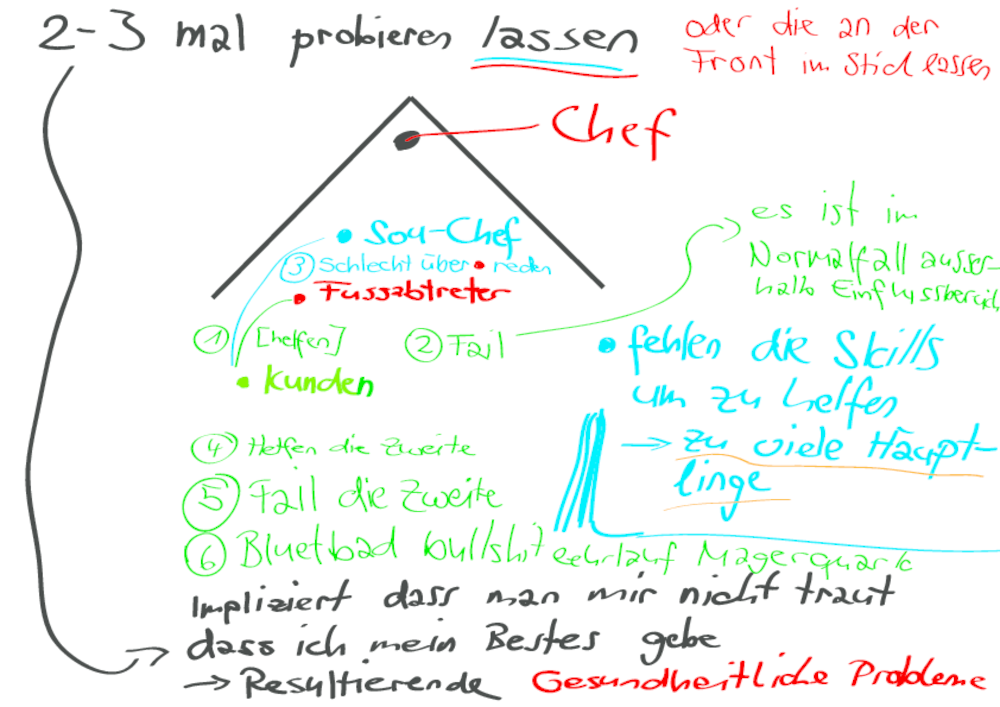 2-3 mal probieren lassen
oder die an der
Front im Stich lassen
Chef
Sou-Chef
③ Schlecht über • reden
Fussabtreter
① [helfen]
② Fail
Kunden
es ist im
Normalfall ausser-
halb Einflussbereich
• fehlen die Skills
um zu helfen
→ zu viele Häupt-
linge
④ Helfen die Zweite
⑤ Fail die Zweite
⑥ Bluetbad bullshit Leehrlauf Magerquark
Impliziert dass man mir nicht traut
dass ich mein Bestes gebe
→ Resultierende Gesundheitliche Probleme